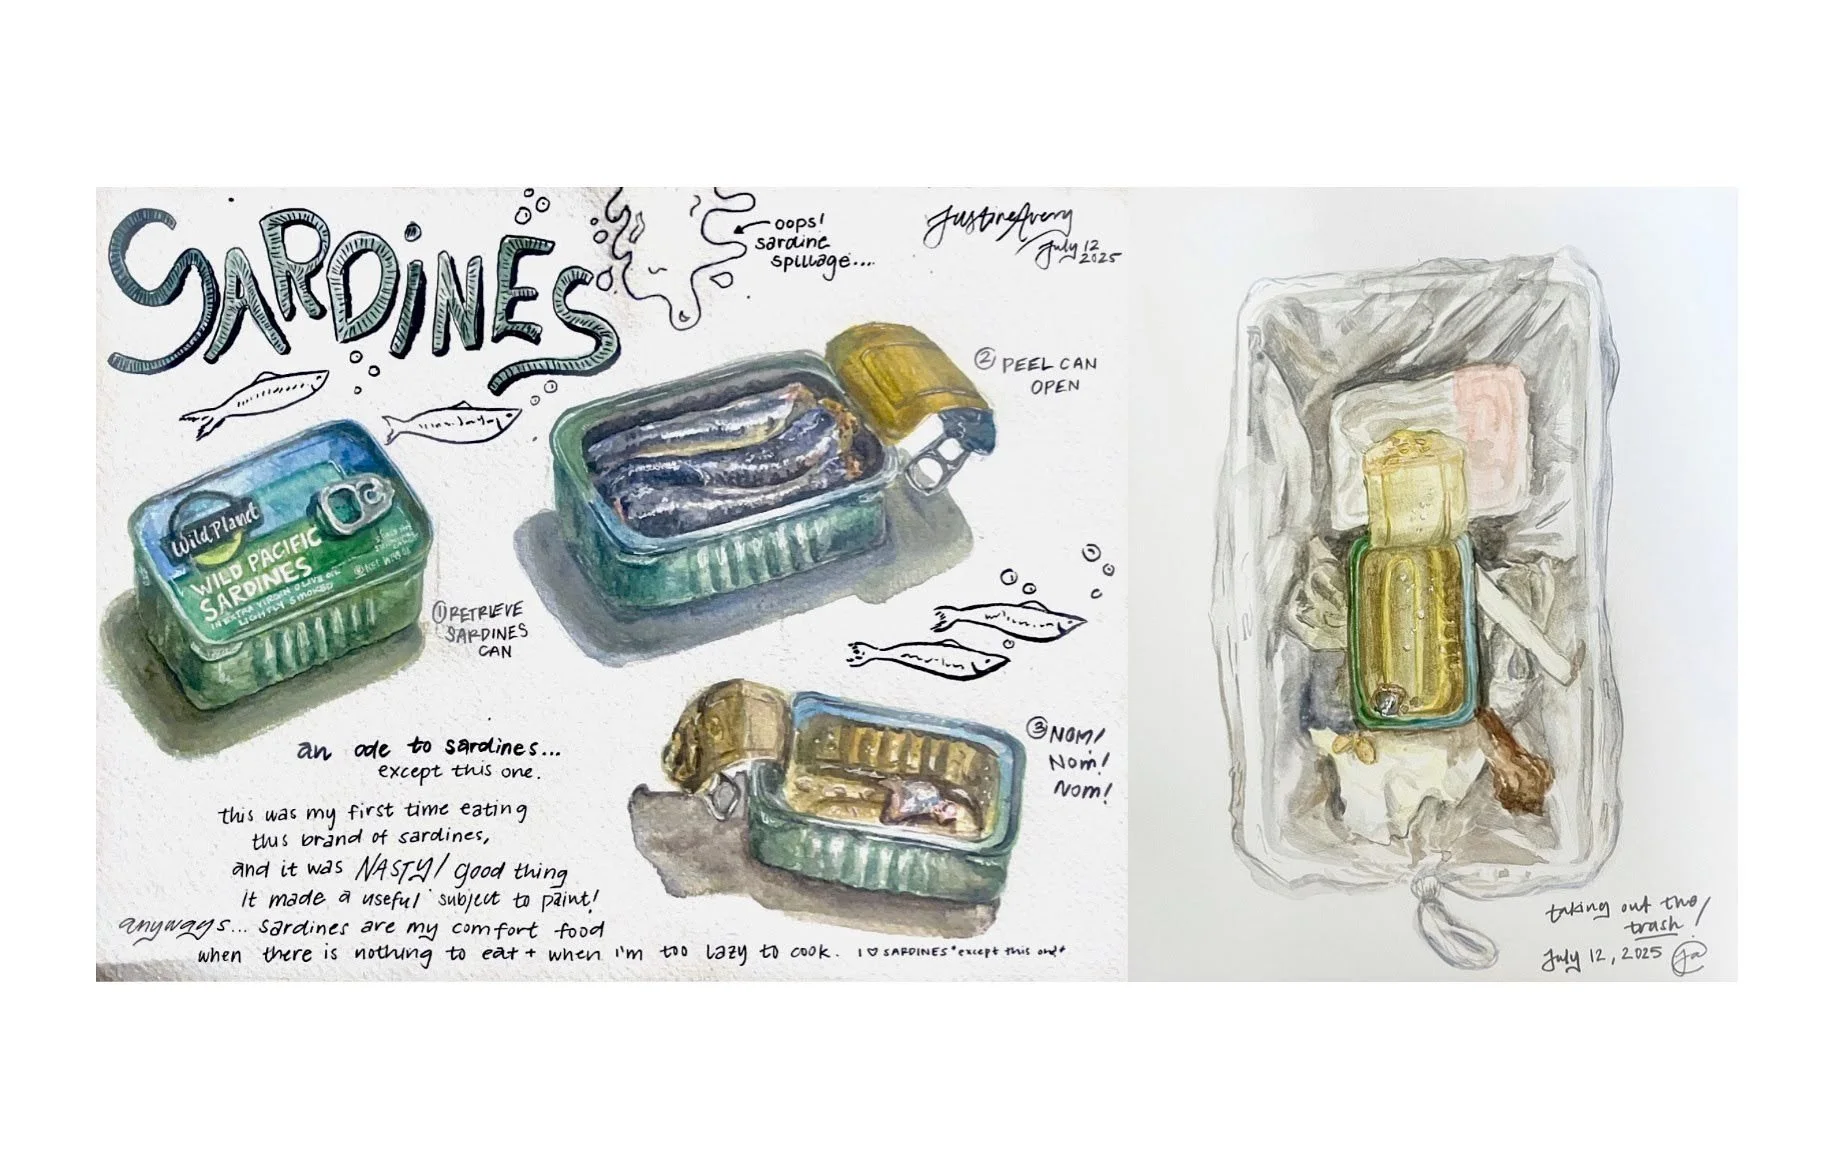 SARDINES
oops!
sardine
spillage....
JustineAvery
July 12
2025
② PEEL CAN
OPEN
Wild Planet
WILD PACIFIC
SARDINES
IN EXTRA VIRGIN OLIVE OIL
LIGHTLY SMOKED
① RETRIEVE
SARDINES
CAN
③ NOM!
NOM!
NOM!
an ode to sardines...
except this one.
this was my first time eating
this brand of sardines,
and it was NASTY! good thing
it made a useful subject to paint!
anyways... sardines are my comfort food
when there is nothing to eat + when i'm too lazy to cook. I ♡ SARDINES *except this one*
taking out the
trash!
July 12, 2025 ja